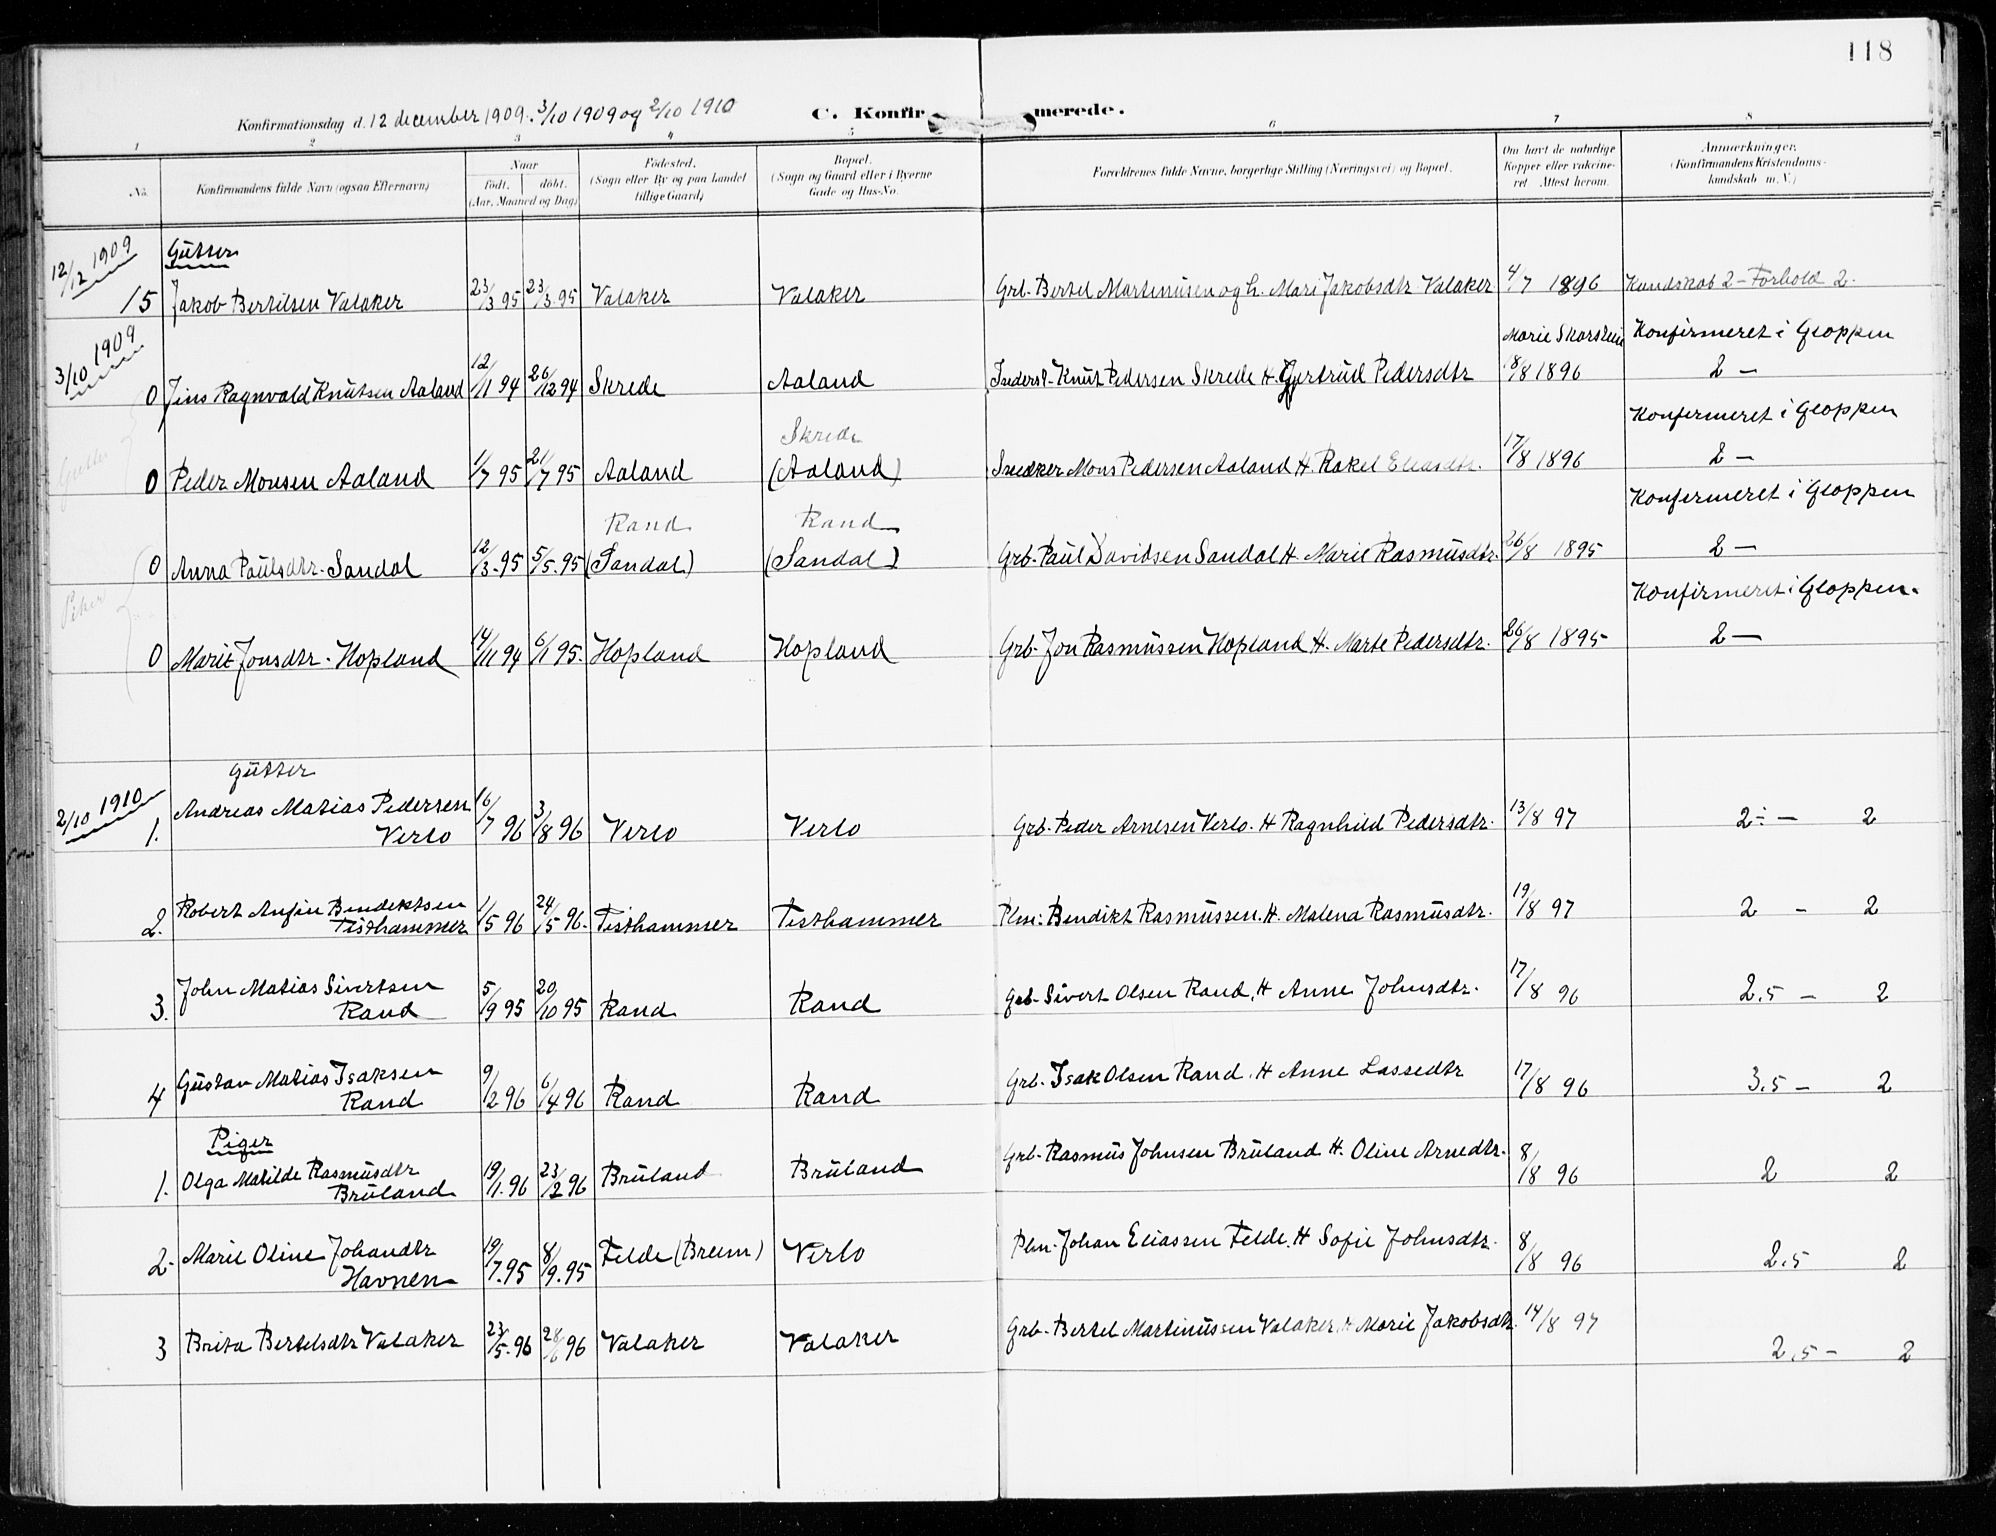 118
Konfirmationsdag d. 12 december 1909. 3/10 1909 og 2/10 1910 C. Konfirmerede.
1 2 3 4 5 6 7 8
No. Konfirmandens fulde Navn (ogsaa Efternavn) Naar födt. döbt. (Aar, Maaned og Dag) Födested. (Sogn eller By og paa Landet tillige Gaard) Bopæl. (Sogn og Gaard eller i Byerne Gade og Hus-No. Forældrenes fulde Navne, borgerlige Stilling (Næringsvei) og Bopæl. Om havt de naturlige Kopper eller vakcineret Attest herom. Anmærkninger. (Konfirmandens Kristendomskundskab m. V.)
12/12 1909 Gutter
15 Jakob Bertilsen Valaker 23/3 95 23/3 95 Valaker Valaker Grb. Bertel Martinusen og h. Mari Jakobsdtr Valaker 4/7 1896 Kundskab 2 – Forhold 2.
3/10 1909 Marie Skarstein Konfirmeret i Gloppen
0 Jens Ragnvald Knutsen Aaland 12/11 94 26/12 94 Skrede Aaland Inderst. Knut Pedersen Skrede H. Gjertrud Pedersdtr 18/8 1896 2 –
Gutter Skrede Konfirmeret i Gloppen
0 Peder Monsen Aaland 1/7 95 21/7 95 Aaland (Aaland) Snedker Mons Pedersen Aaland H Rakel Eliasdtr. 17/8 1896 2 –
Rand Rand Konfirmeret i Gloppen
0 Anna Paulsdtr. Sandal 12/3. 95 5/5. 95 (Sandal) (Sandal) Grb. Paul Davidsen Sandal H. Marie Rasmusdtr. 26/8 1895 2 –
Piker Konfirmeret i Gloppen.
0 Marie Jonsdtr. Hopland 14/11 94 6/1 95. Hopland Hopland Grb. Jon Rasmussen Hopland H. Marte Pedersdtr. 26/8 1895 2 –
Gutter
2/10 1910 Andreas Matias Pedersen
1. Verlo 16/7 96 3/8 96 Verlo Verlo Grb. Peder Arnesen Verlo. H Ragnhild Pedersdtr. 13/8 97 2 ÷ – 2
Robert Anfin Bendiktsen
2. Tisthammer 1/5 96 24/5 96. Tisthammer Tisthammer Plm: Bendikt Rasmussen. H. Malena Rasmusdtr. 19/8 97 2 – 2
John Matias Sivertsen
3. Rand 5/9 95 20/10 95 Rand Rand Grb. Sivert Olsen Rand, H Anne Johnsdtr. 17/8 96 2.5 – 2
Gustav Matias Isaksen
4 Rand 9/2 96 6/4 96 Rand Rand Grb. Isak Olsen Rand. H Anne Lassedtr 17/8 96 3.5 – 2
Piger
Olga Matilde Rasmusdtr
1. Bruland 19/1. 96 23/2 96 Bruland Bruland Grb. Rasmus Johnsen Bruland H. Oline Arnedtr. 8/8 96 2 2
Marie Oline Johandtr
2. Havnen 19/7. 95 8/9. 95 Felde (Breim) Verlo Plm. Johan Eliassen Felde. H Sofie Johnsdtr. 8/8 96 2.5 2
3 Brita Bertelsdtr Valaker 23/5. 96 28/6 96 Valaker Valaker Grb. Bertel Martinussen Valaker, H Marie Jakobsdtr. 14/8 97 2.5 – 2